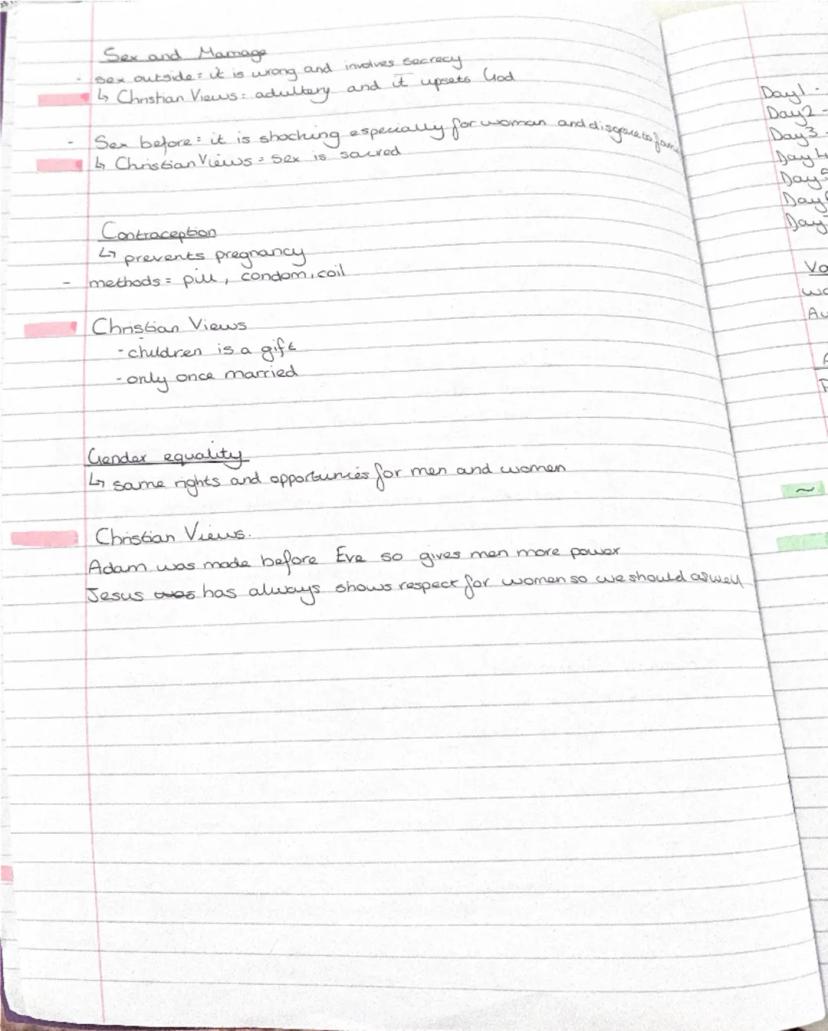 Sex and Marriage
- sex outside = it is wrong and involves secrecy
↳ Christian Views = adultery and it upsets God
- Sex before = it is shocking especially for woman and
↳ Christian Views = sex is sacred
Contraception
↳ prevents pregnancy
- methods = pill, condom, coil
Christian Views
- children is a gift
- only once married
Gender equality
↳ same rights and opportunies for men and women
Christian Views.
Adam was made before Eve so gives men more power
Jesus was has always shows respect for women so we should aswell
Day1 -
Day2 -
Day3 -
Day4
Day5
Day6
Day
Vo
wo
Au
~